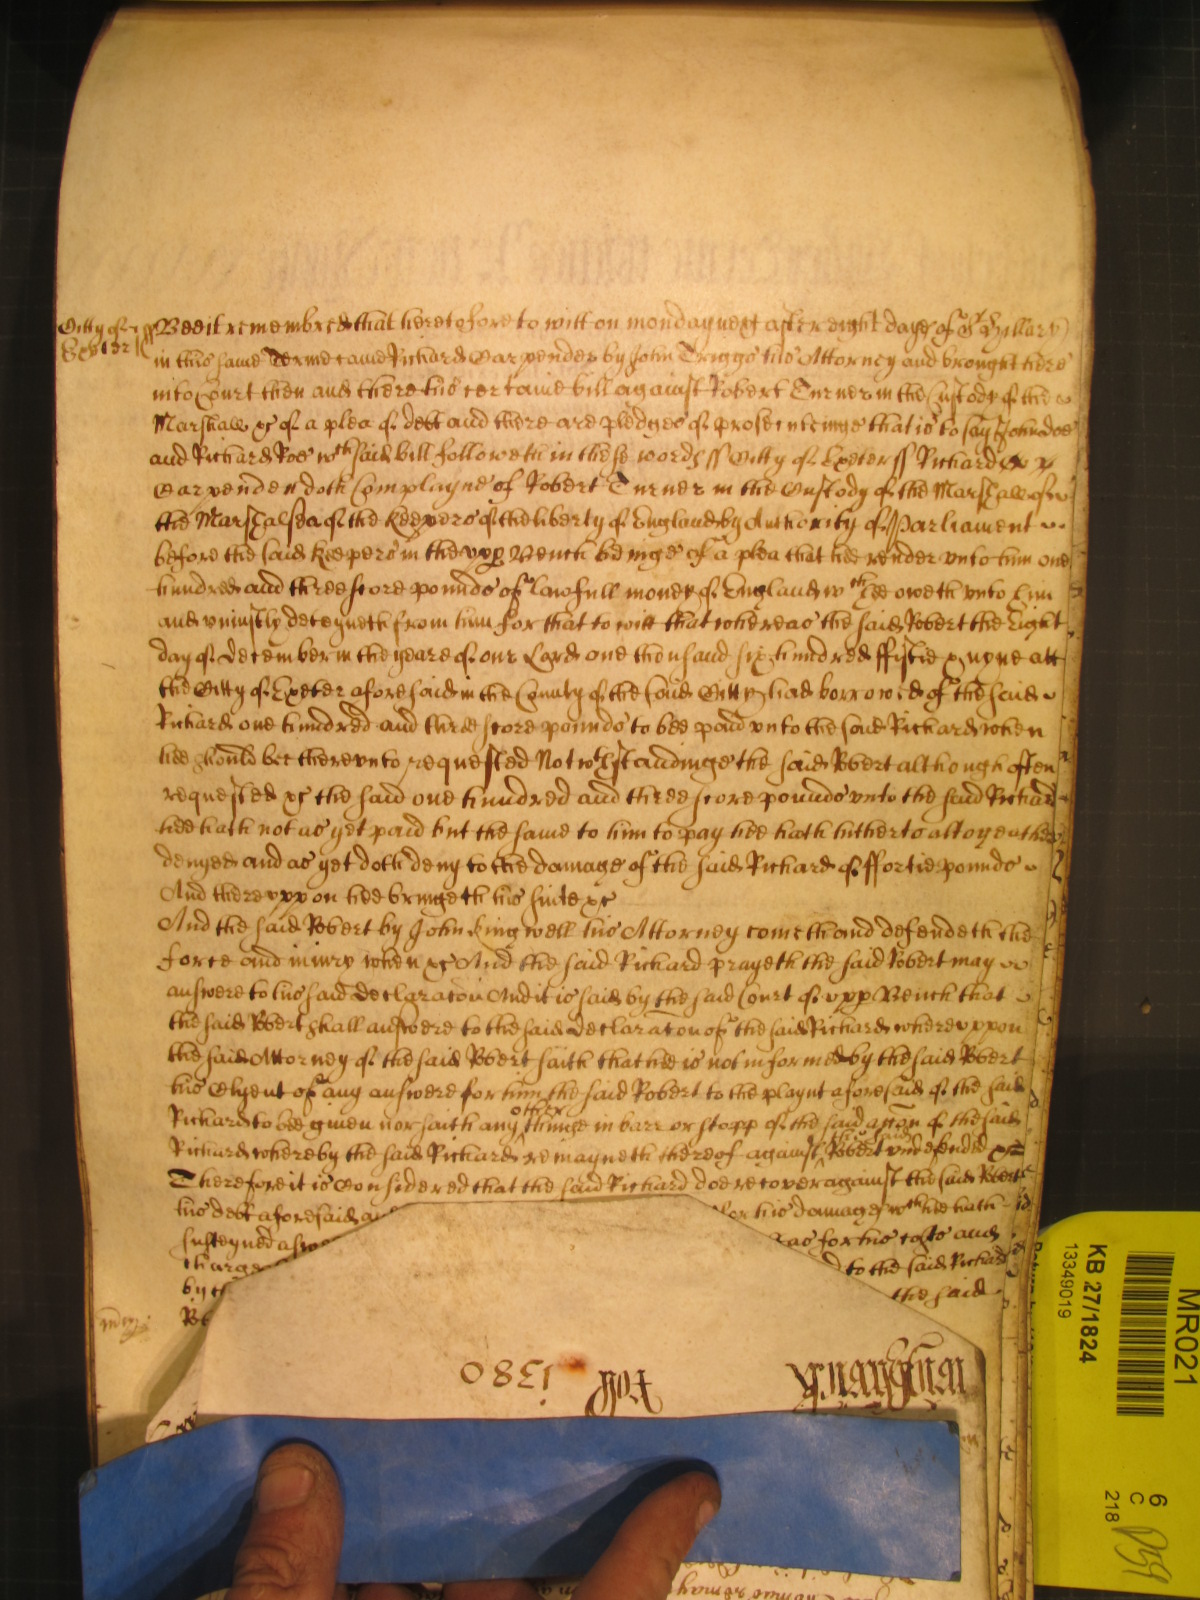 Citty of ss
Exeter
Bee it remembred that heretofore to witt on monday next after eight dayes of St Hillary
in this same Terme came Richard Carpenden by John Triggs his Attorney and brought here
into Court then and there his certaine bill against Robert Turner in the Custody of the
Marshall xc of a plea of debt and there are pledges of prosecutinge that is to say John doe
and Richard Roe wch said bill followeth in these words ss Citty of Exeter ss Richard
Carpenden doth Complayne of Robert Turner in the Custody of the Marshall of
the Marshalsea of the Keepers of the liberty of England by Authority of Parliament
before the said Keepers in the upp Bench beinge of a plea that hee render vnto him one
hundred and threescore pounds of lawfull money of England wch hee oweth vnto him
and vniustly deteyneth from him for that to witt that whereas the said Robert the Eight
day of December in the yeare of our Lord one thousand six hundred ffiftie & nyne att
the Citty of Exeter aforesaid in the County of the said Citty had borrowed of the said
Richard one hundred and threescore pounds to bee paid vnto the said Richard when
hee should bee therevnto requested Notwthstandinge the said Robert although often
requested xc the said one hundred and threescore pounds vnto the said Richard
hee hath not as yet paid but the same to him to pay hee hath hitherto altogeather
denyed and as yet doth deny to the damage of the said Richard of ffortie pounds
And therevppon hee bringeth his suite xc
And the said Robert by John Kingwell his Attorney cometh and defendeth the
force and iniury when xc And the said Richard prayeth the said Robert may
answere to his said declaracon And it is said by the said Court of upp Bench that
the said Robert shall answere to the said declaracon of the said Richard wherevppon
the said Attorney of the said Robert saith that hee is not informed by the said Robert
his Clyent of any answere for him the said Robert to the playnt aforesaid of the said
Richard to bee given nor saith any other thinge in barr or stopp of the said accon of the said
Richard whereby the said Richard remayneth thereof against the said Robert vndefended xc
Therefore it is Considered that the said Richard doe recover against the said Robert
his debt aforesaid for his damages wch hee hath
susteyned as for his costs and
to the said Richard
by the the said
1380
Roll
KB 27/1824
13349019
MR021
6
C
218